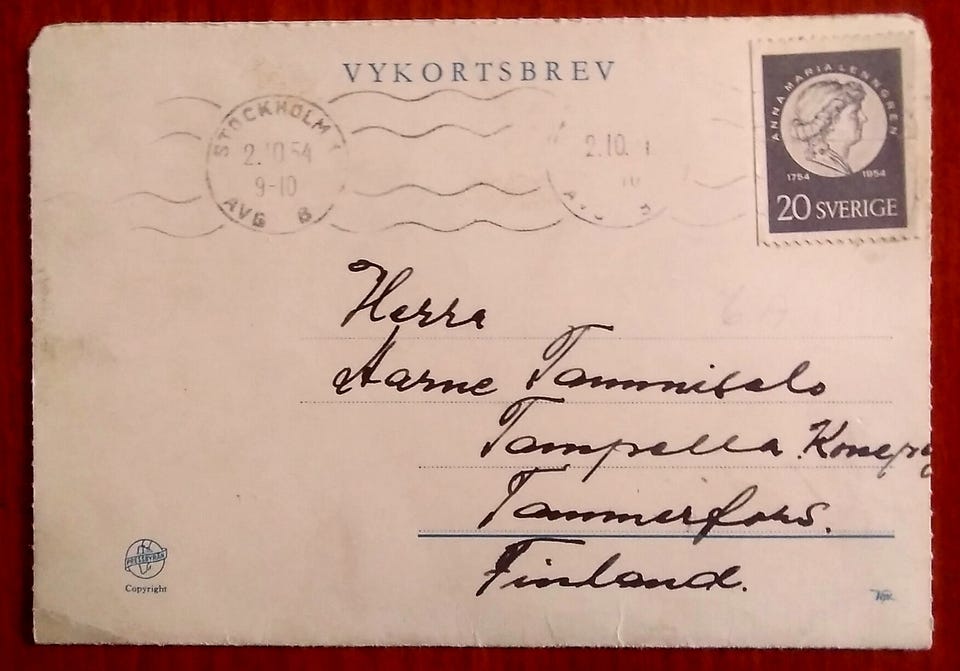 VYKORTSBREV
STOCKHOLM
2.10.54
9-10
AVG 6
2.10.
ANNA MARIA LENNGREN
1754 1954
20 SVERIGE
Herra
Aarne Tammisalo
Tampella
Tammerfors.
Finland.
PRESSBYRÅN
Copyright